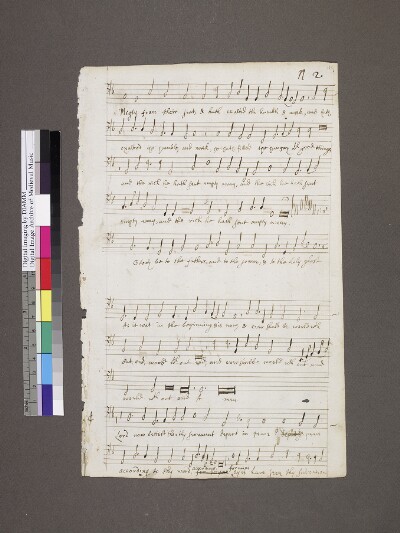 Digital Imaging by DIAMM
Digital Image Archive of Medieval Music
2
Mighty from their seat, & hath exalted the humble & meek, and hath
exalted the humble and meek, he hath filled the hungry with good things
and the rich he hath sent empty away, and the rich he hath sent
empty away, and the rich he hath sent empty away
Glory be to the father, and to the sonne, & to the holy ghost
As it was in the beginning & is now & ever shall be world with
out end, world without end, and ever shall be world with out end
world with out end A men
Lord now lettest thou thy servant depart in peace depart in peace
according to thy word have seen thy salvation